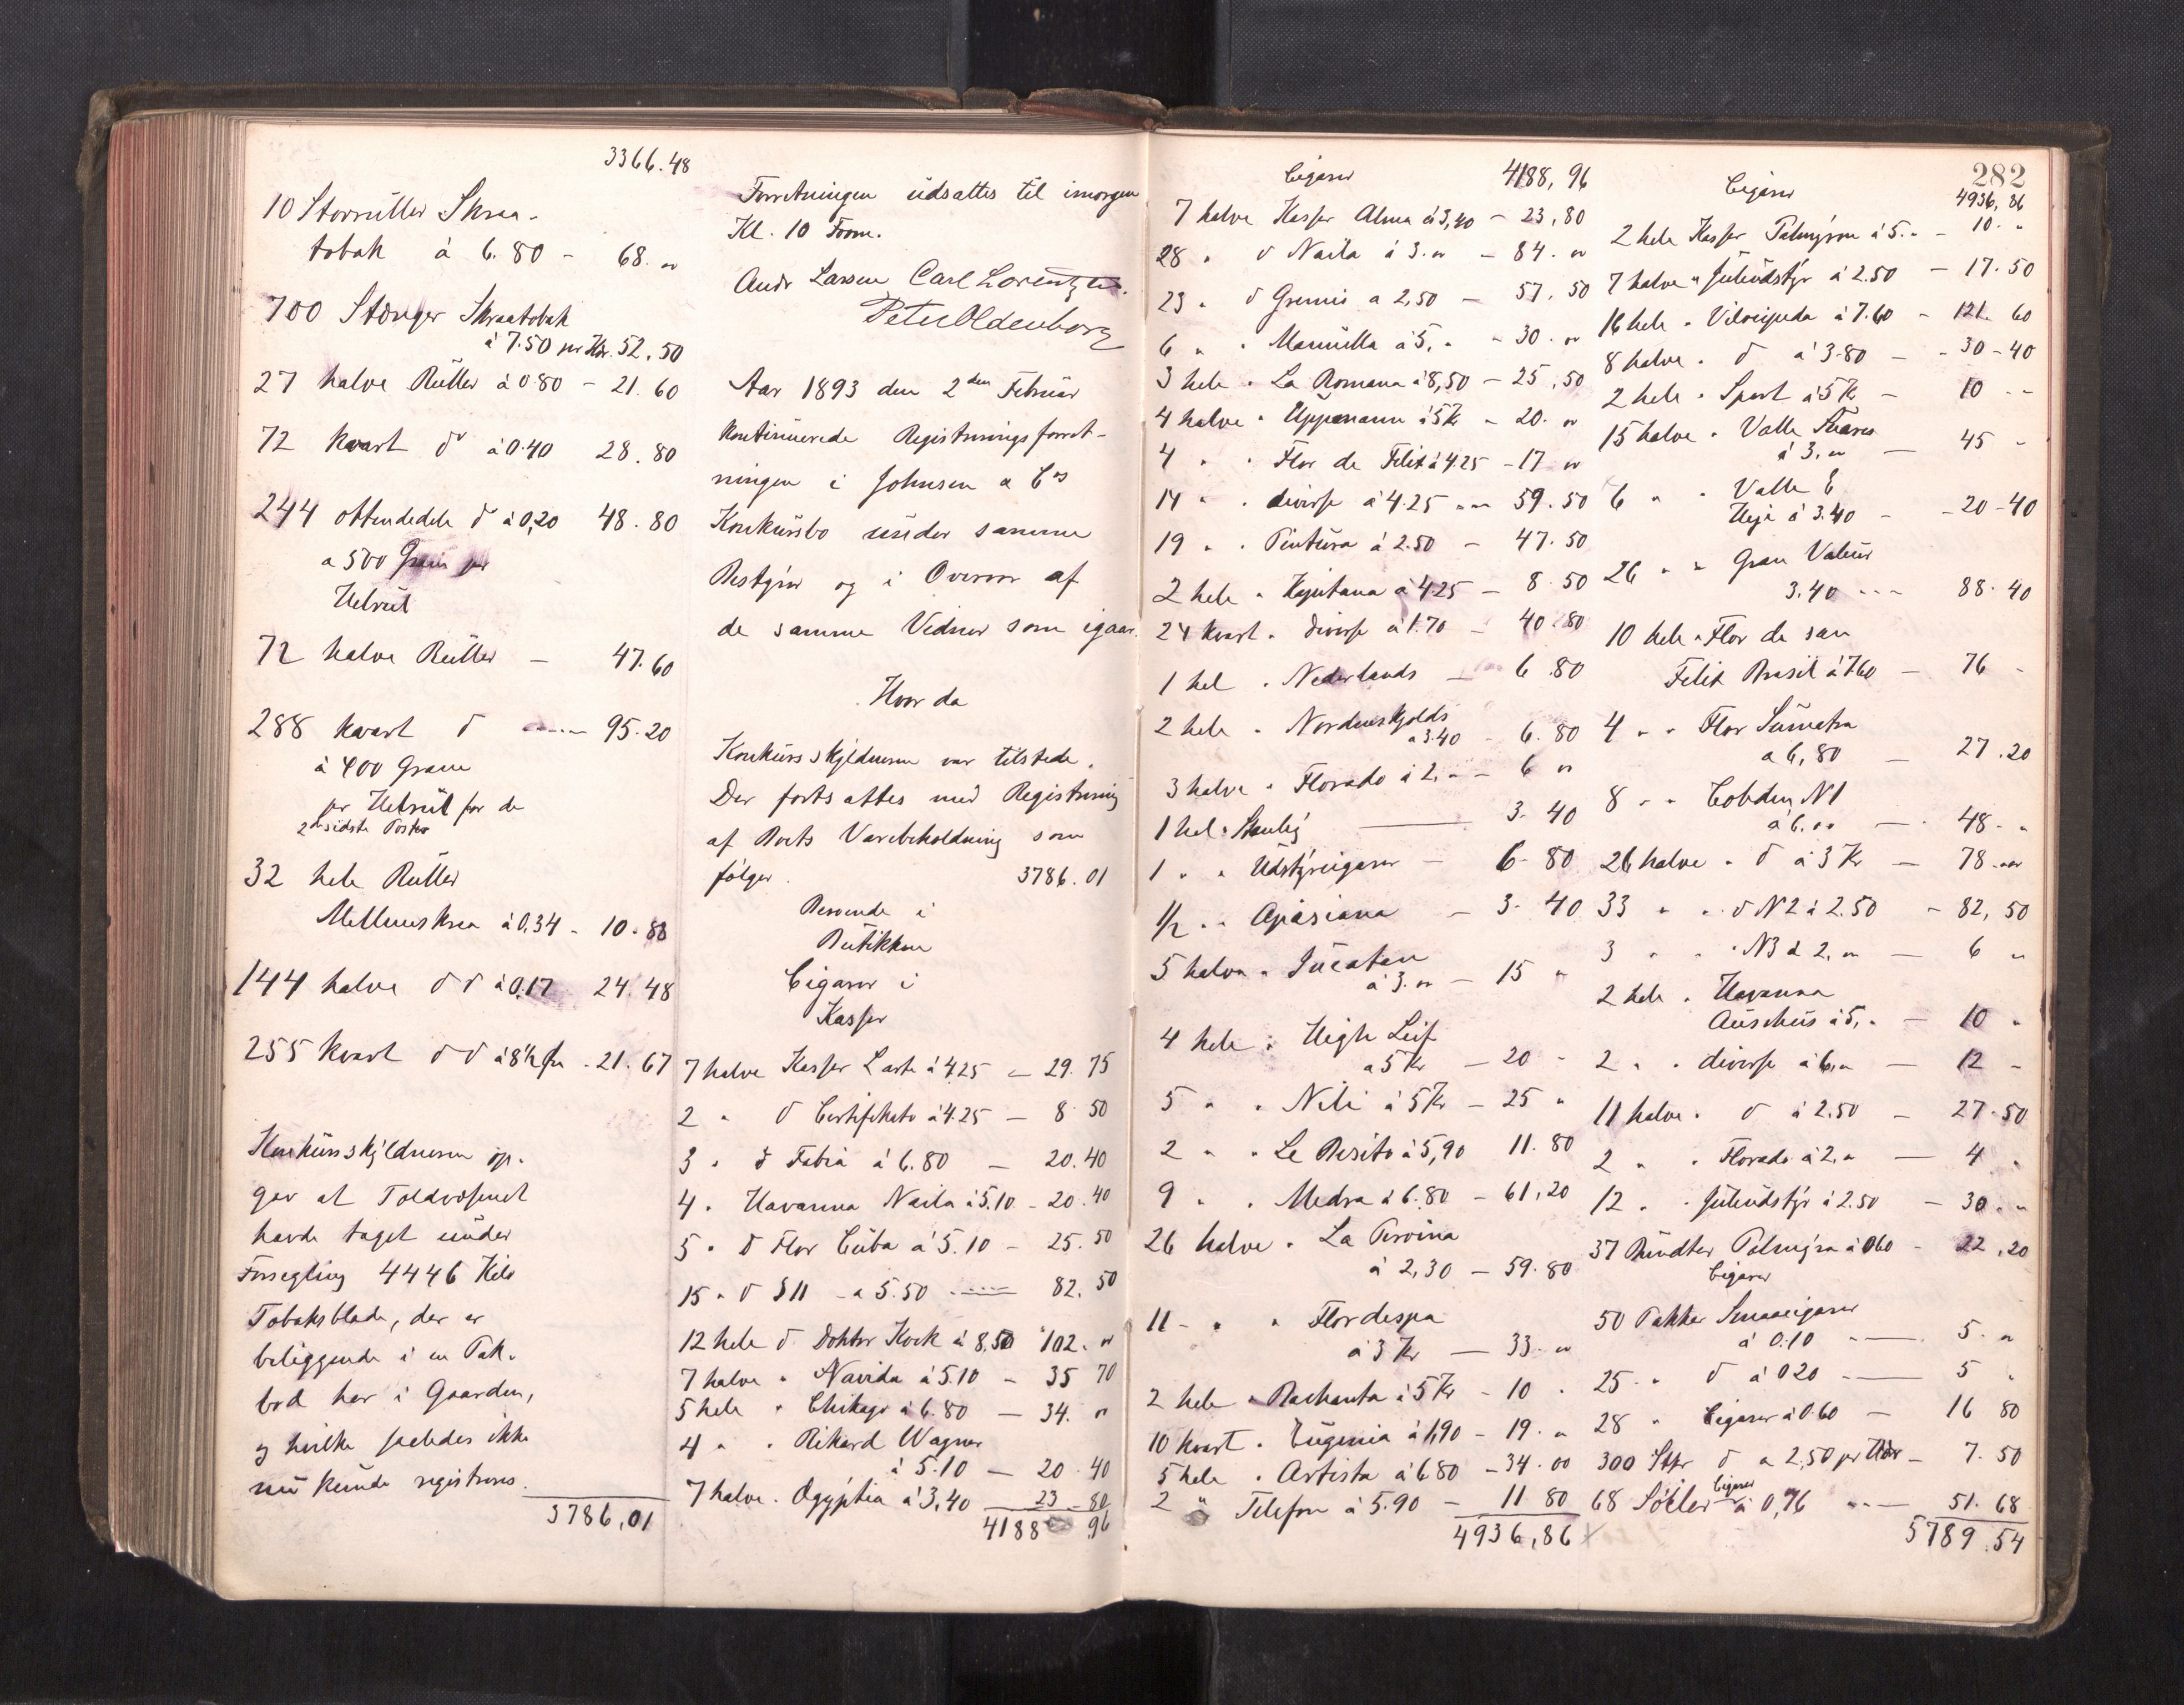 3366.48
10 Storruller Skraa-
tobak à 6.80 - 68. "
700 Stænger Skraatobak
à 7.50 pr Hdr. 52,50
27 halve Ruller à 0.80 - 21.60
72 kvart d° à 0.40 28.80
244 ottendedele d° à 0,20 48.80
a 500 Gram pr
Helrul
72 halve Ruller - 47.60
288 kvart d° 95.20
à 400 Gram
pr Helrul for de
2de sidste Poster
32 hele Ruller
Mellemskraa à 0.34 - 10.88
144 halve d° d° à 0.17 24.48
255 kvart d° d° à 8½ - 21.67
Konkursskyldneren op-
gav at Toldvæsenet
havde taget under
Forsegling 4446 Kilo
Tobaksblade, der er
beliggende i en Pak-
bod her i Gaarden,
og hvilke saaledes ikke
nu kunde registreres.
3786,01
Forretningen udsattes til imorgen
Kl. 10 Form.
Andr Larsen Carl Lorentzen.
Peter Oldenborg
Aar 1893 den 2den Februar
kontinuerede Registreringsforret-
ningen i Johnsen & Co's
Konkursbo under samme
Bestyrer og i Overvær af
de samme Vidner som igaar.
Hvor da
Konkursskyldneren var tilstede.
Der fortsattes med Registrering
af Boets Varebeholdning som
følger. 3786.01
Beroende i
Butikken
Cigarer i
Kasser
7 halve Kasser L'arte à 4.25 - 29.75
2 " d° Certifikato à 4.25 - 8.50
3 " d° Fabia à 6.80 - 20.40
4 " Havanna Naila à 5.10 - 20.40
5 " d° Flor Cuba à 5.10 - 25.50
15 " d° S11 - a 5.50 - 82.50
12 hele d° Doktor Kock à 8.50 102. "
7 halve " Navida à 5.10 - 35 70
5 hele " Chikago à 6.80 - 34. "
4 " " Rikard Wagner
à 5.10 - 20.40
7 halve " Ægyptia à 3,40 23-80
4188 96
Cigarer 4188,96
7 halve Kasser Alma à 3,40 - 23,80
28 " d° Naila à 3. " - 84. "
23 " d° Gremis a 2,50 - 57.50
6 " " Manuilla à 5, " - 30. "
3 hele " La Romana à 8,50 - 25,50
4 halve " Uppmann à 5 Kr - 20. "
4 " " Flor de Felix à 4.25 - 17 "
14 " " diverse à 4.25 59.50
19 " " Pintura à 2.50 - 47.50
2 hele " Kajutana à 4.25 - 8.50
24 kvart " diverse à 1.70 - 40.80
1 hel " Nederlands - 6.80
2 hele " Nordenskjolds
a 3.40 - 6.80
3 halve " Florado à 2. " - 6 "
1 hel " Stanley 3.40
1 " " Udstyrcigarer - 6-80
1/2 " " Apasiana - 3.40
5 halve " Jucatan
à 3. " - 15 "
4 hele " High Leif
a 5 Kr - 20 -
5 " " Nili à 5 Kr - 25 "
2 " " Le Resito à 5,90 11.80
9 " " Medra à 6.80 - 61,20
26 halve " La Pervina
à 2,30 - 59.80
11 - " " Flor despa
à 3 Kr - 33. "
2 hele " Bachanta à 5 Kr - 10 "
10 kvart " Eugenia à 1,90 - 19. "
5 hele " Artista à 6.80 - 34.00
2 " Telefon à 5.90 - 11 80
4936,86
282
Cigarer 4936,86
2 hele Kasser Palmyra à 5. " - 10. "
7 halve " Juleudstyr à 2.50 - 17.50
16 hele " Vilvigeda à 7.60 - 121.60
8 halve " d° à 3.80 - 30-40
2 hele " Sport à 5 Kr - 10 --
15 halve " Valle Flaves
à 3, " - 45 -
6 " " Valle E
Heja à 3.40 - 20-40
26 " " Gran Valeur
3.40 --- 88.40
10 hele " Flor de san
Felix Brasil à 7.60 - 76 -
4 " " Flor Sumatra
a 6,80 - 27.20
8 " " Cobden N1
à 6. " - 48. "
26 halve " d° à 3 Kr - 78. "
33 " " d° N2 à 2.50 - 82,50
3 " " " N3 à 2. " - 6 "
2 hele " Havanna
Auschus à 5, " - 10 "
2 " " diverse à 6, " - 12 -
11 halve " d° à 2.50 - 27.50
2 " " Florado à 2. " - 4 "
12 " " Juleudstyr à 2.50 - 30. "
37 Bundter Palmyra à 0.60 - 22,20
Cigarer
50 Pakker Smaacigarer
à 0.10 - 5. "
25 " d° à 0 20 - 5 "
28 " Cigarer à 0.60 - 16 80
300 Stkr d° a 2,50 pr Hdr - 7.50
68 Söiler Cigarer à 0,76 - 51.68
5789.54